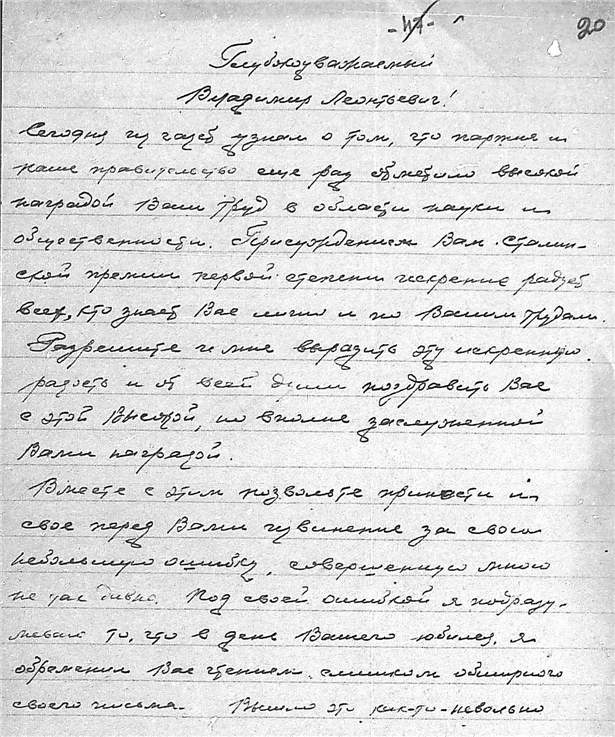 20
Глубокоуважаемый
Владимир Леонтьевич!
Сегодня из газет узнал о том, что партия и
наше правительство еще раз отметило высокой
наградой Ваш труд в области науки и
общественности. Присуждением Вам Сталин-
ской премии первой степени искренне радует
всех, кто знает Вас лично и по Вашим трудам.
Разрешите и мне выразить эту искреннюю
радость и от всей души поздравить Вас
с этой высокой, но вполне заслуженной
Вами наградой.
Вместе с этим позвольте принести и
свое перед Вами извинение за свою
небольшую ошибку, совершенную мною
не так давно. Под своей ошибкой я подразу-
меваю то, что в день Вашего юбилея, я
обременил Вас чтением слишком обширного
своего письма. Вышло это как-то невольно